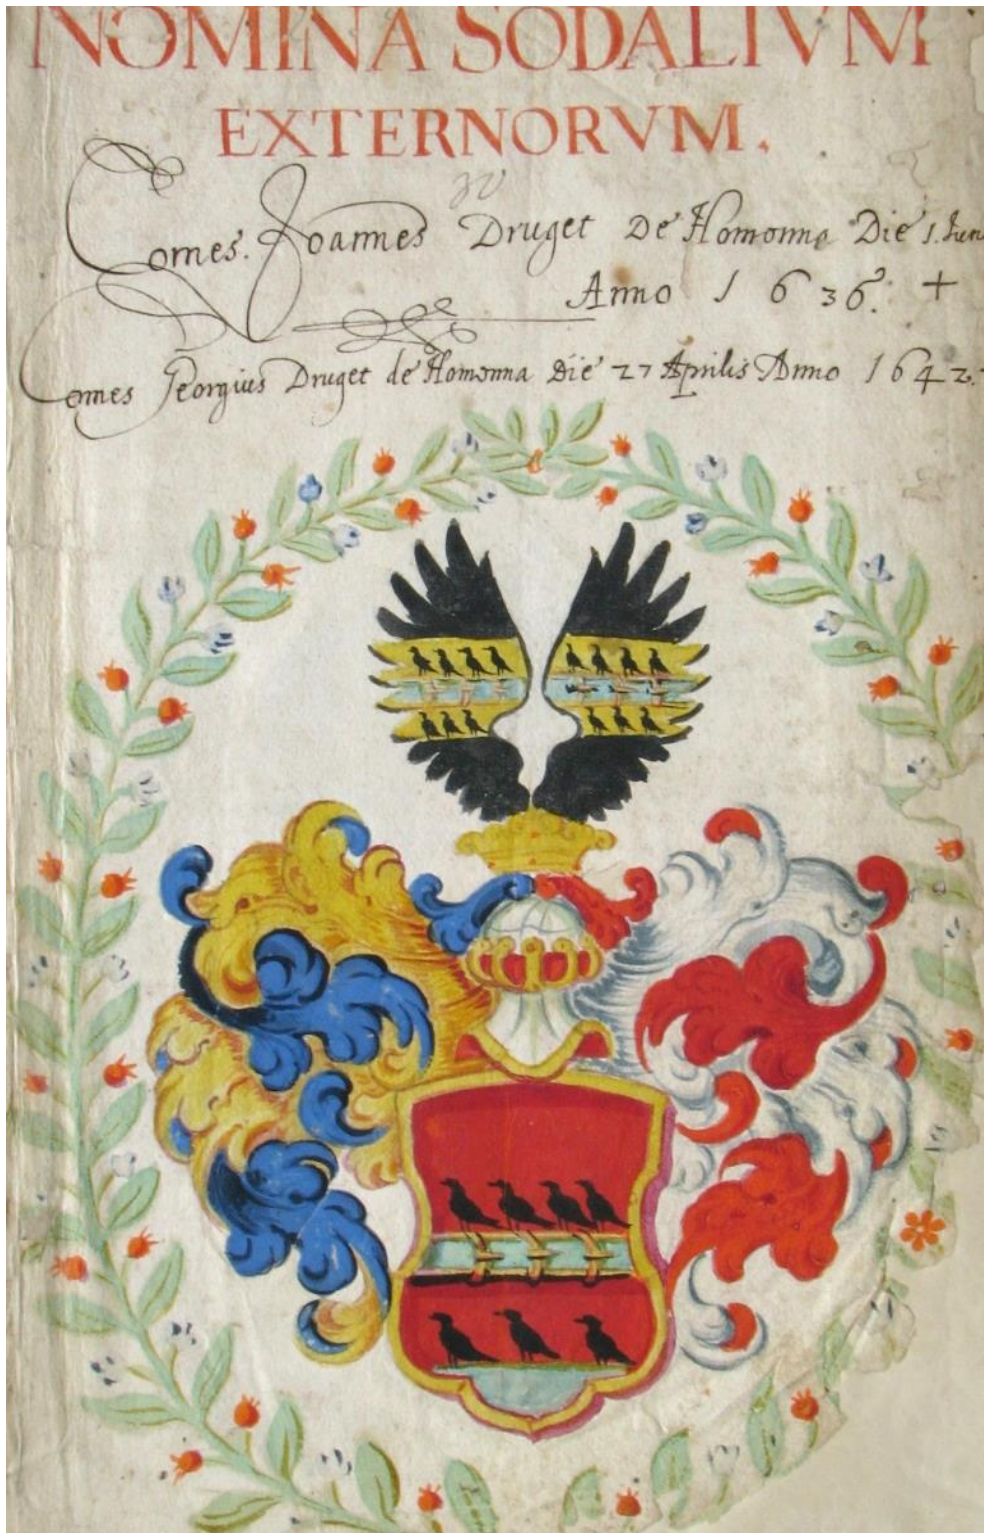 NOMINA SODALIVM
EXTERNORVM.
Comes. Joannes Druget De Homonna Die 1. Iun
Anno 1636. +
Comes Georgius Druget de Homonna Die 27 Aprilis Anno 1642.